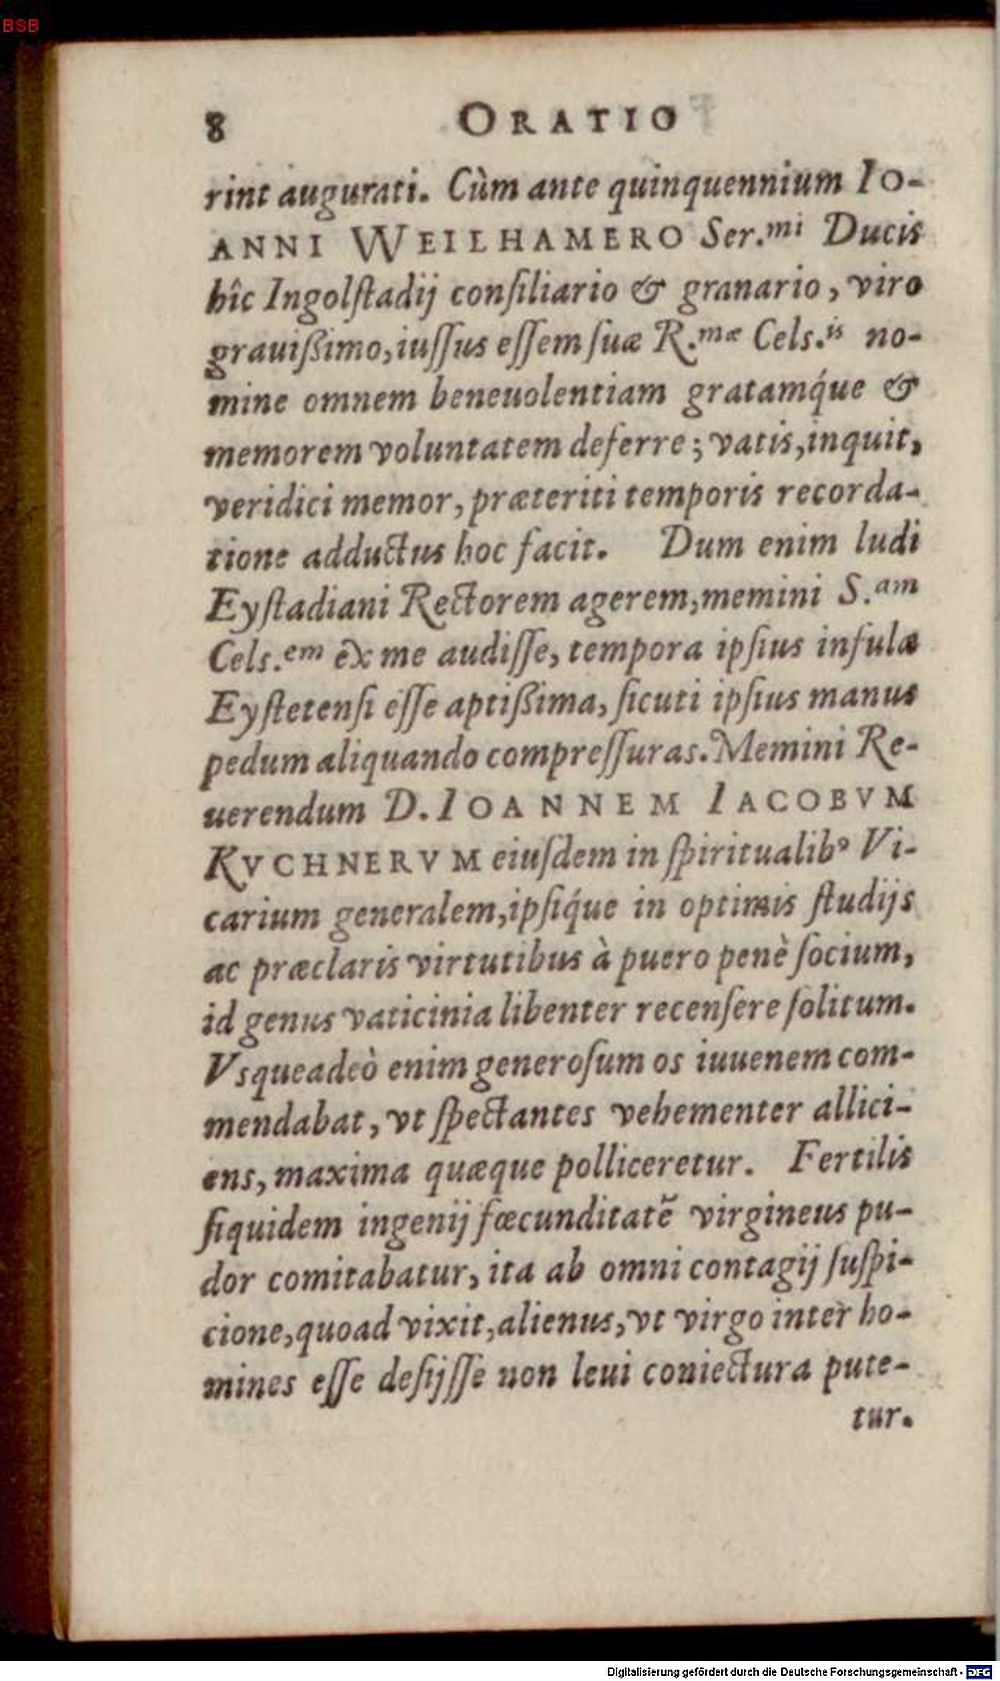 BSB
8 ORATIO
rint augurati. Cùm ante quinquennium IO-
ANNI WEILHAMERO Ser.mi Ducis
hîc Ingolstadij consiliario & granario, viro
grauißimo, iussus essem suæ R.mæ Cels.is no-
mine omnem beneuolentiam gratamq́ue &
memorem voluntatem deferre; vatis, inquit,
veridici memor, præteriti temporis recorda-
tione adductus hoc facit. Dum enim ludi
Eystadiani Rectorem agerem, memini S.am
Cels.em ex me audisse, tempora ipsius infulæ
Eystetensi esse aptißima, sicuti ipsius manus
pedum aliquando compressuras. Memini Re-
uerendum D. IOANNEM IACOBVM
KVCHNERVM eiusdem in spiritualibꝰ Vi-
carium generalem, ipsiq́ue in optimis studijs
ac præclaris virtutibus à puero penè socium,
id genus vaticinia libenter recensere solitum.
Vsqueadeò enim generosum os iuuenem com-
mendabat, vt spectantes vehementer allici-
ens, maxima quæque polliceretur. Fertilis
siquidem ingenij fœcunditatẽ virgineus pu-
dor comitabatur, ita ab omni contagij suspi-
cione, quoad vixit, alienus, vt virgo inter ho-
mines esse desijsse non leui coniectura pute-
tur.
Digitalisierung gefördert durch die Deutsche Forschungsgemeinschaft - DFG